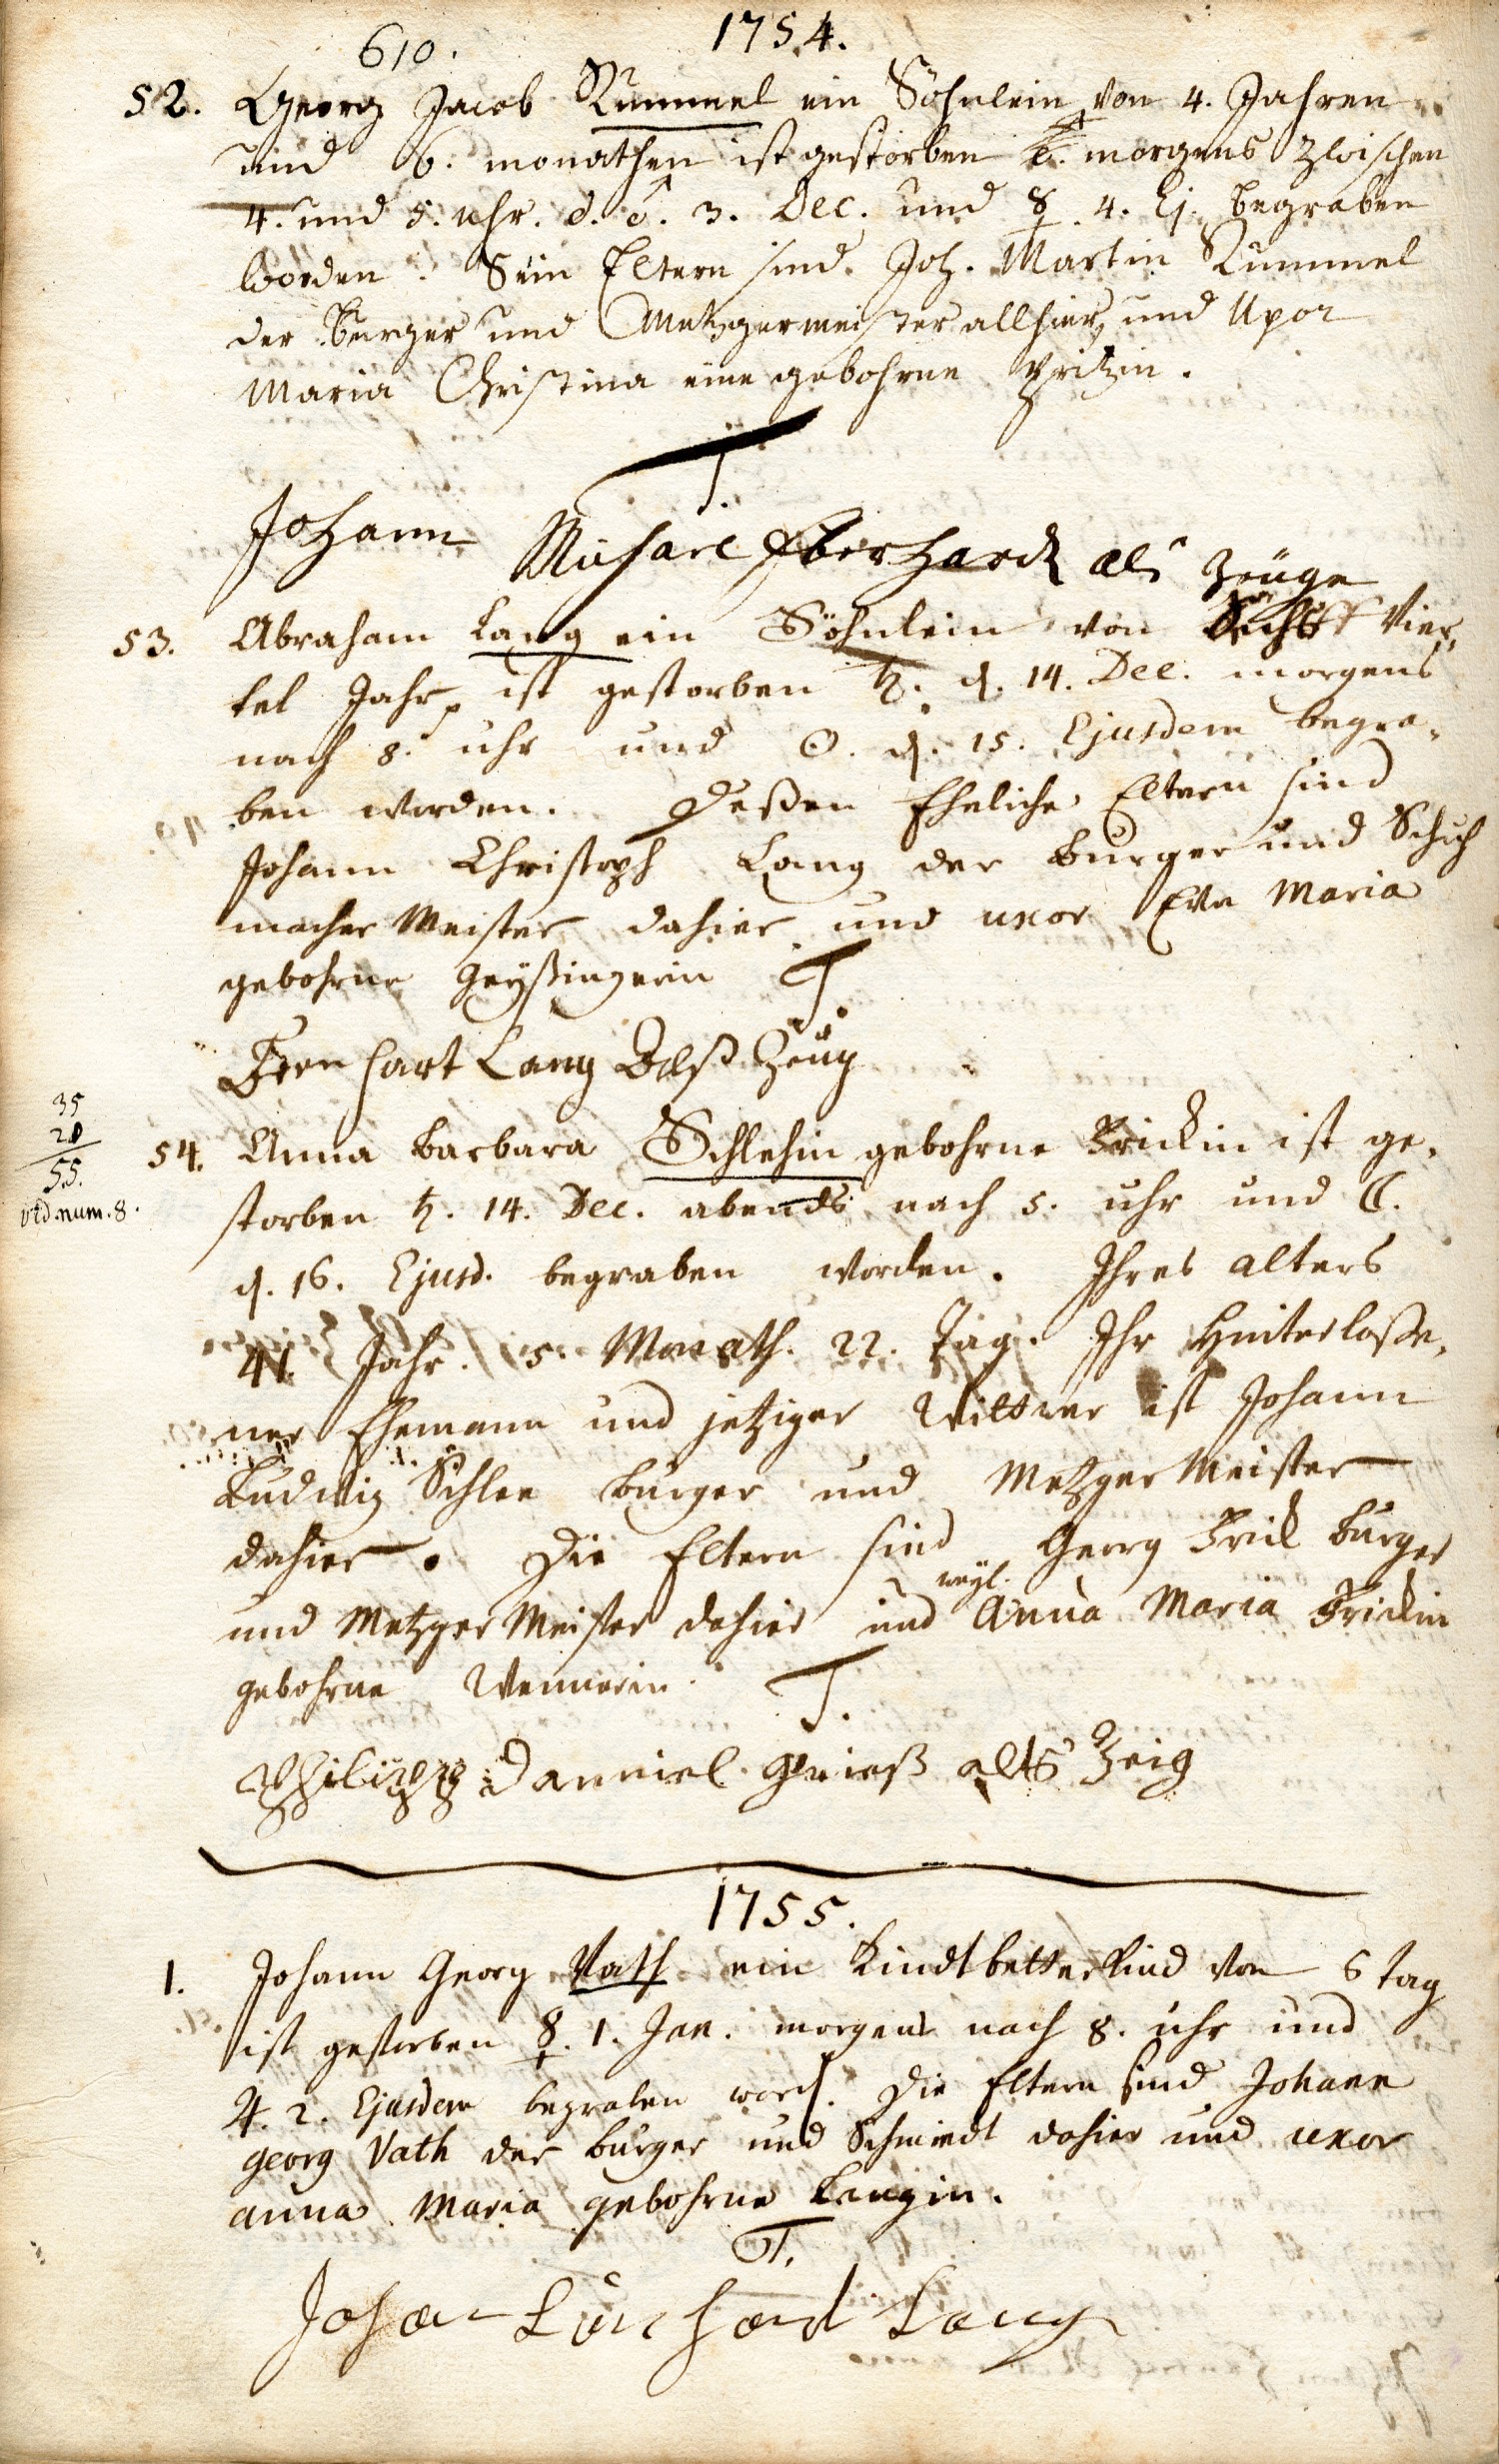 1754.
610.
52. Georg Jacob Rummel ein Söhnlein von 4. Jahren
und 6. monathen ist gestorben morgens zwischen
4. und 5. uhr. d. ♂. 3. Dec. und ☿. 4. Ej. begraben
worden. Sein Eltern sind. Joh. Martin Rummel
der Burger und Metzgermeister allhier, und Uxor
Maria Christina eine gebohrne
T.
Johann Michael Eberhardt als Zeuge
53. Abraham Lang ein Söhnlein von Vier-
tel Jahr, ist gestorben ♄. d. 14. Dec. morgens
nach 8. uhr und ☉. d. 15. Ejusdem begra-
ben worden. Deßen Eheliche Eltern sind
Johann Christoph Lang der Burger und Schuh
macher Meister dahier und uxor Eva Maria
gebohrne Geyßingerin T
Lang Zeug
35
20
55.
vid. num. 8.
54. Anna Barbara Schlehin gebohrne Frickin ist ge-
storben ♄. 14. Dec. abends nach 5. uhr und ☾.
d. 16. Ejusd. begraben worden. Ihres alters
41. Jahr. 5. Monath. 22. Tag. Ihr Hinterlaße-
ner Ehemann und jetziger Wittwer ist Johann
Ludwig Schlee Burger und Metzger Meister
dahier. Die Eltern sind Georg Frick Burger
und Metzger Meister dahier und weyl. Anna Maria Frickin
gebohrne T.
Philipp Danniel alts Zeig
1755.
1. Johann Georg Vath ein Kindtbetterkind von 6 Tag
ist gestorben ☿. 1. Jan. morgens nach 8. uhr und
♃. 2. Ejusdem begraben word. Die Eltern sind Johann
Georg Vath der Burger und Schmiedt dahier und uxor
Anna Maria gebohrne Langin.
T.
Johan Lang